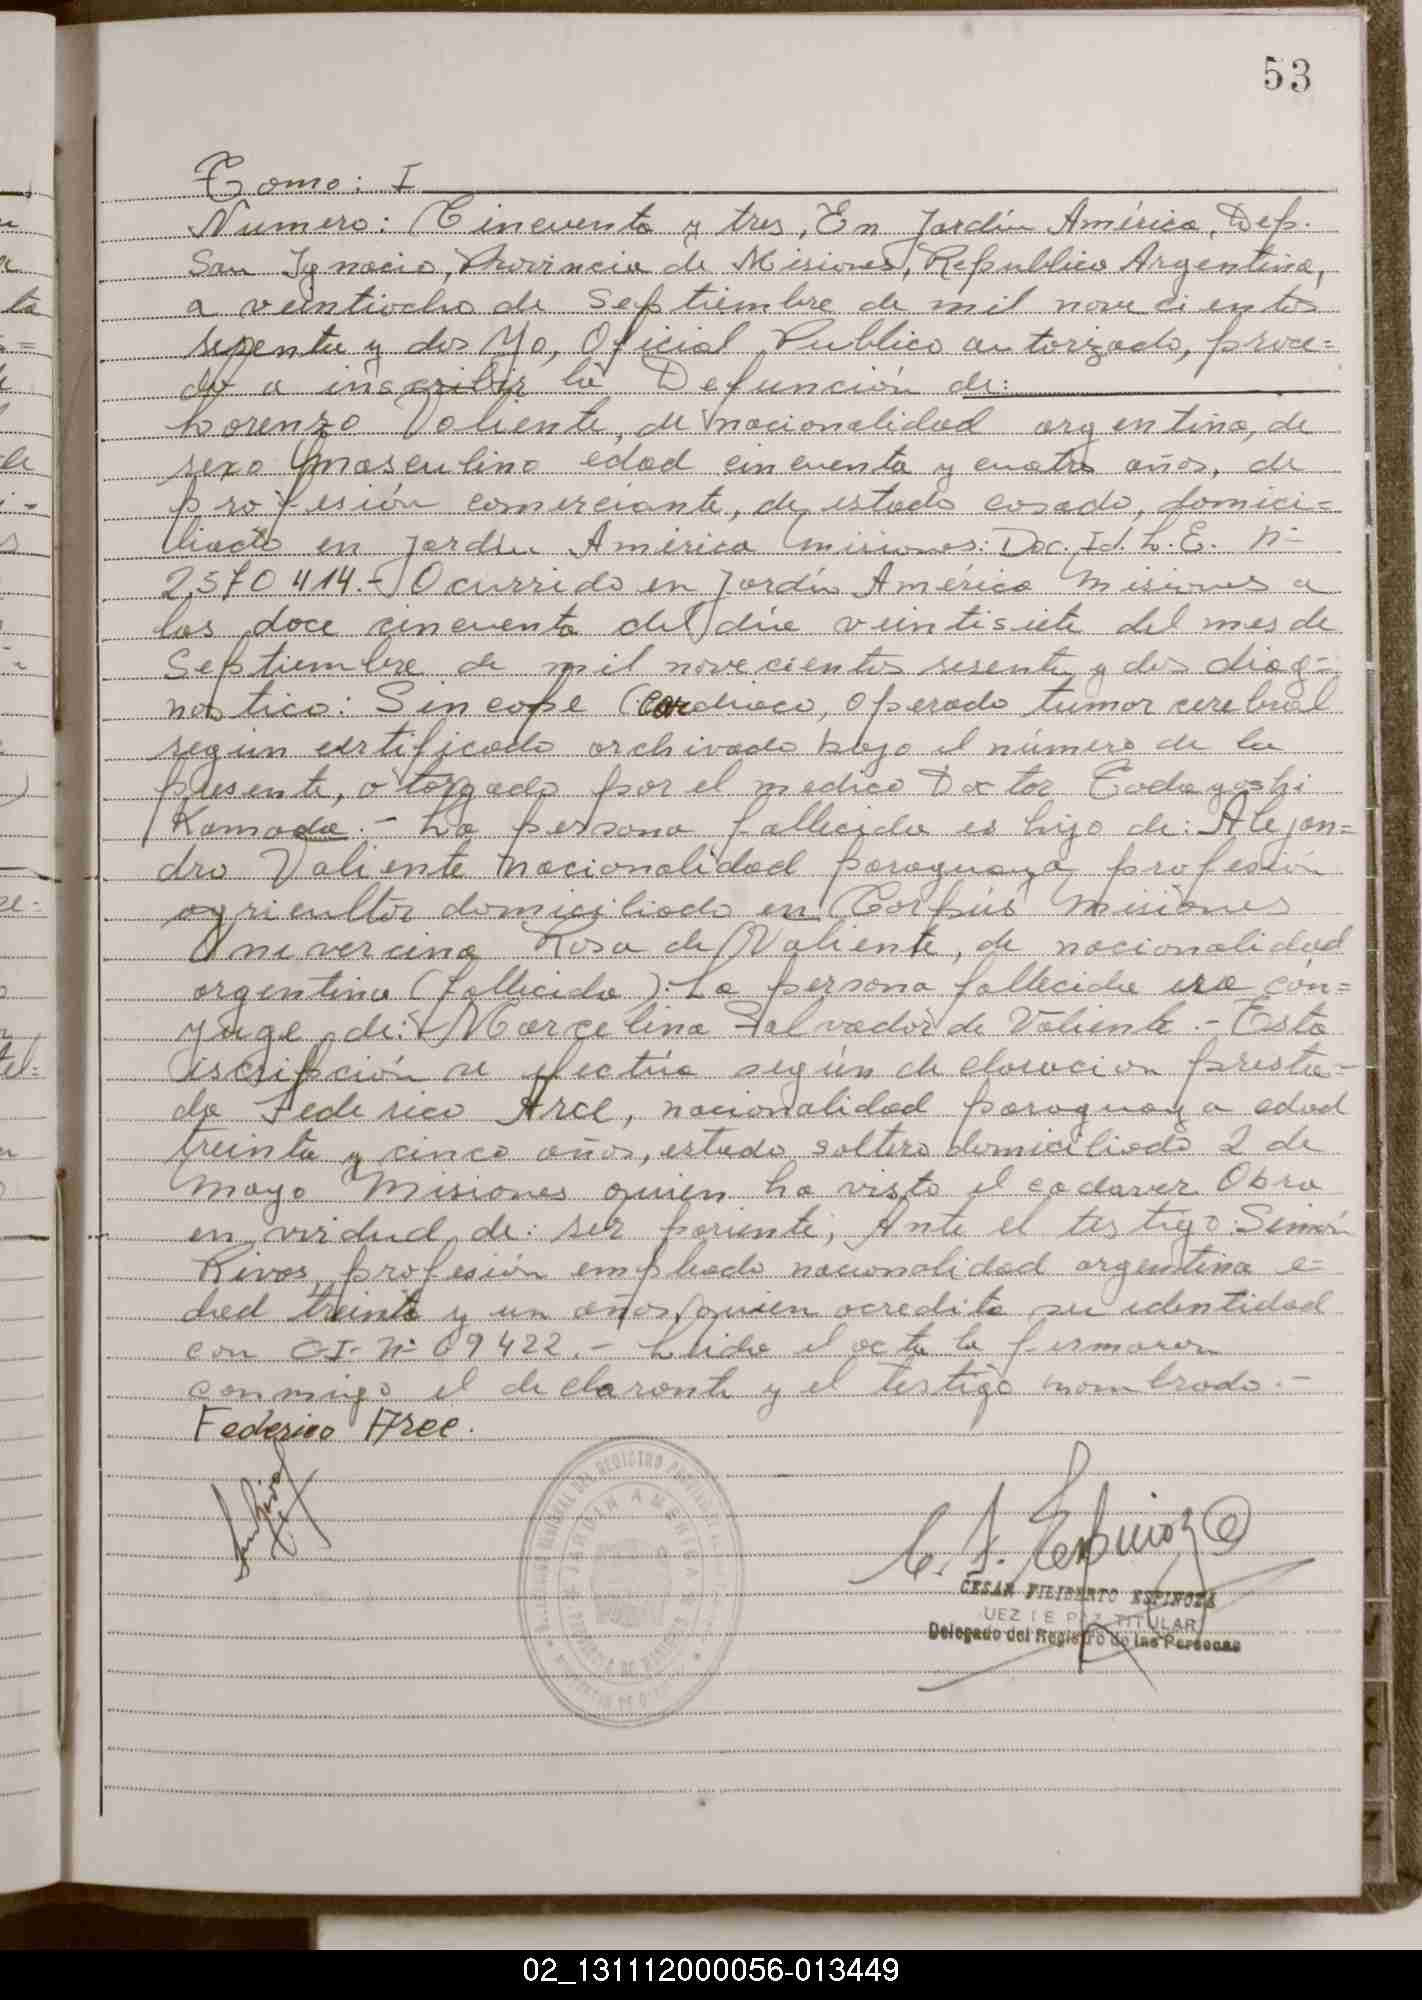 53
Tomo: I
Numero: Cincuenta y tres, En Jardín América, Dep.
San Ignacio, Provincia de Misiones, Republica Argentina,
a veintiocho de Septiembre de mil novecientos
sesenta y dos Yo, Oficial Publico autorizado, proce=
do a inscribir la Defunción de:
Lorenzo Valiente, de nacionalidad argentina, de
sexo masculino edad cincuenta y cuatro años, de
profesión comerciante, de estado casado, domici=
liado en Jardin América Misiones: Doc. Id. L. E. Nº
2.570414.- Ocurrido en Jardín América Misiones a
las doce cincuenta del día veintisiete del mes de
Septiembre de mil novecientos sesenta y dos diag=
nostico: Sincope Cardiaco, Operado tumor cerebral
según certificado archivado bajo el número de la
presente, otorgado por el medico Doctor Tadayoshi
Kamada.- La persona fallecida es hijo de: Alejan=
dro Valiente nacionalidad paraguaya profesión
agricultor domiciliado en Corpús Misiones
Rosa de Valiente, de nacionalidad
argentina (fallecida). La persona fallecida era cón=
yuge de: Marcelina Salvador de Valiente.- Esta
iscripción se efectúa según declaracion presta=
da Federico Arce, nacionalidad paraguaya edad
treinta y cinco años, estado soltero domiciliado 2 de
Mayo Misiones quien ha visto el cadaver Obra
en virdud de: ser pariente; Ante el testigo: Simón
Rivas, profesión empleado nacionalidad argentina e=
dad treinta y un años, quien acredita su identidad
con CI- Nº 69422.- Leida el acta la firmaron
conmigo el declarante y el testigo nombrado.-
Federico Arce.
C. F. Espinoza
CESAR FILIBERTO ESPINOZA
UEZ DE PAZ TITULAR
Delegado del Registro de las Personas
JARDIN AMERICA
PROVINCIA DE MISIONES
02_131112000056-013449